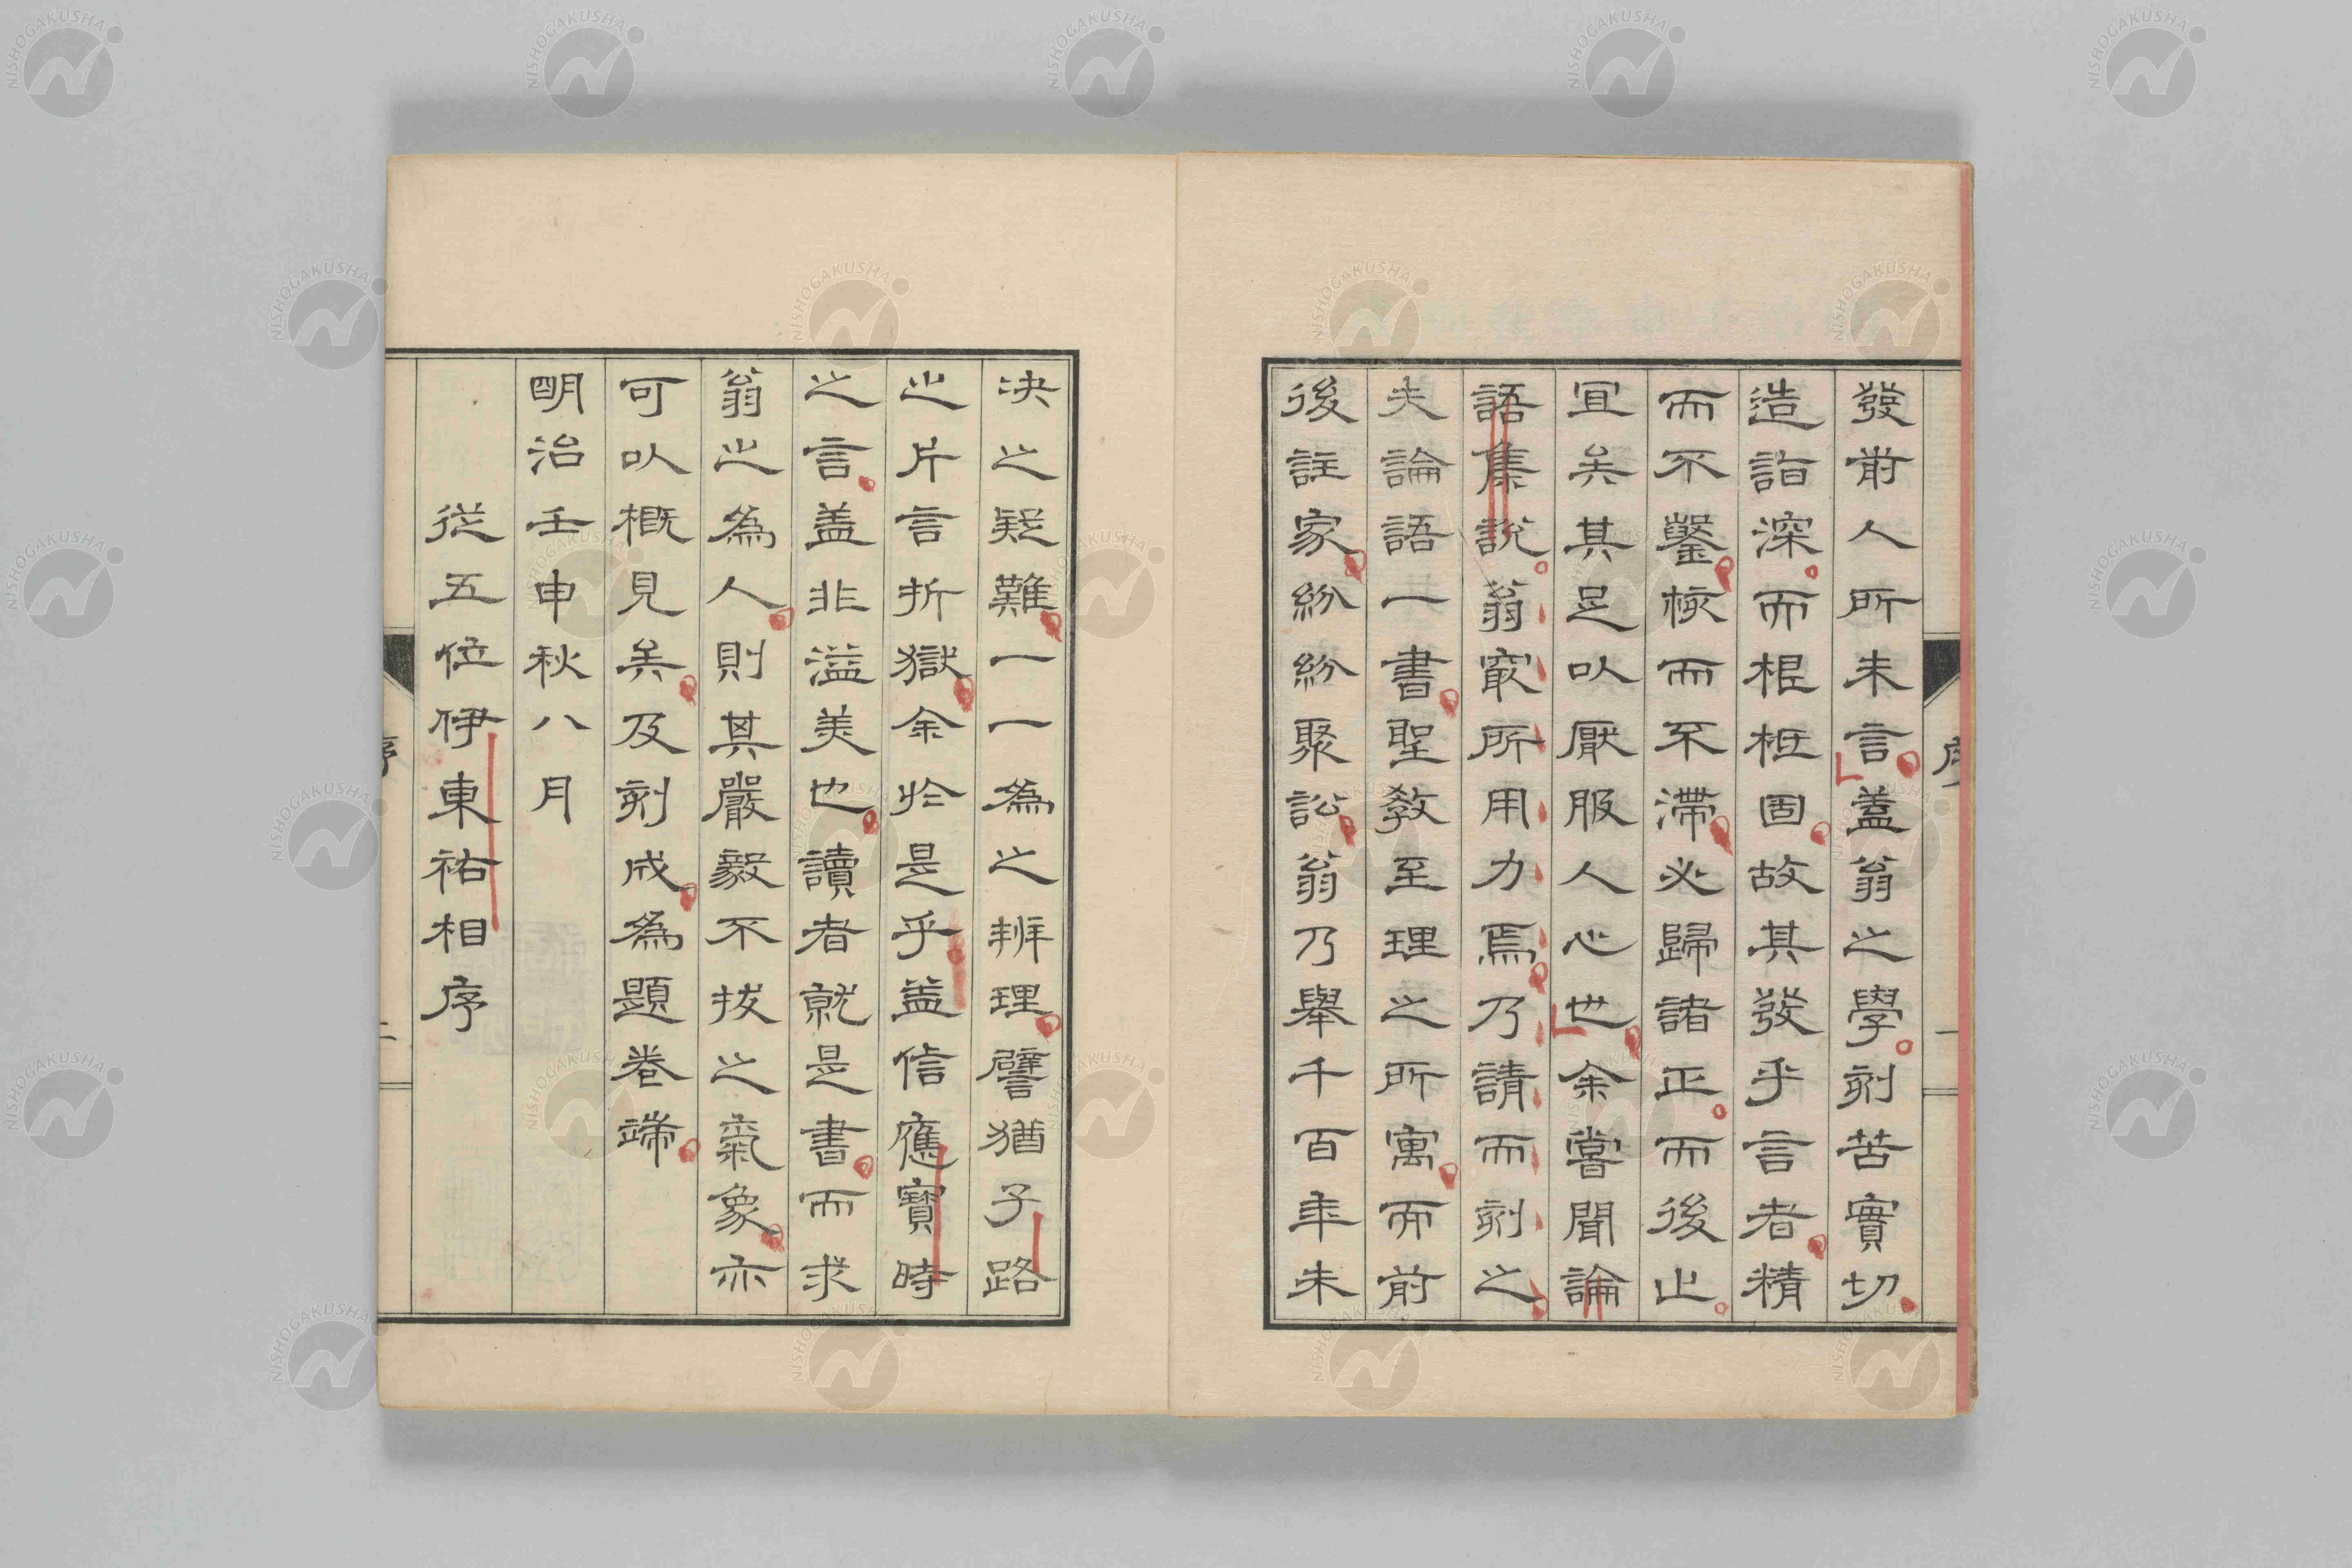 發前人所未言蓋翁之學刻苦實切
造詣深而根柢固故其發乎言者精
而不鑿核而不滯必歸諸正而後止
宜矣其足以厭服人心也余嘗聞論
語集說翁最所用力焉乃請而刻之
夫論語一書聖教至理之所寓而前
後註家紛紛聚訟翁乃舉千百年未
決之疑難一一為之辨理譬猶子路
之片言折獄余於是乎益信應寶時
之言蓋非溢美也讀者就是書而求
翁之為人則其嚴毅不拔之氣象亦
可以概見矣及刻成為題卷端
明治壬申秋八月
從五位伊東祐相序
序
一
二
NISHOGAKUSHA